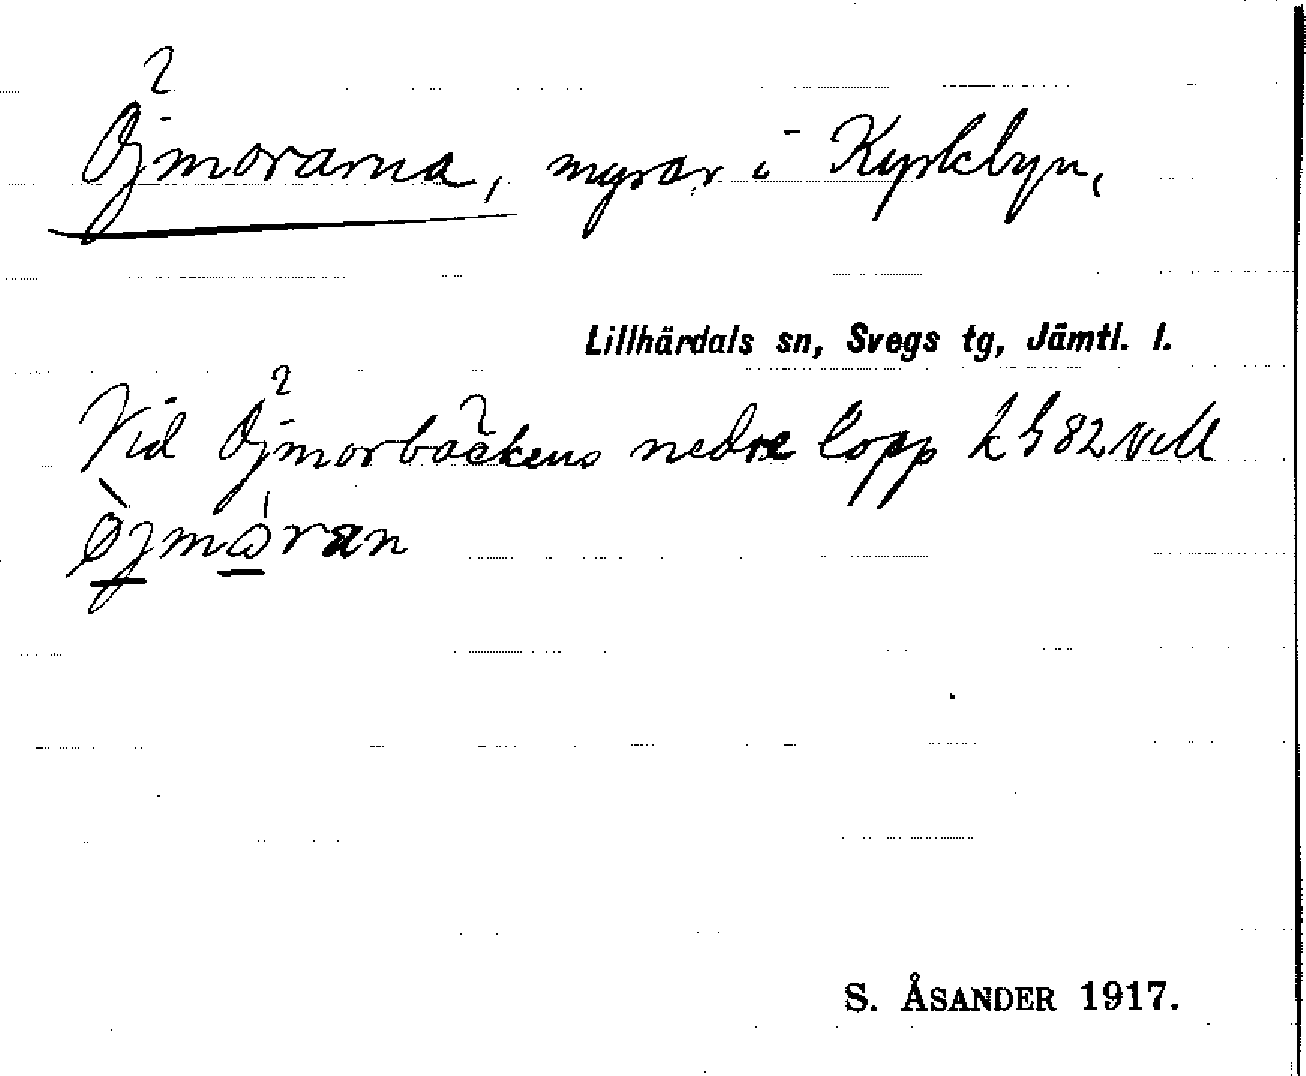 Öjmorarna, myrar i Kyrkbyn,
Lillhärdals sn, Svegs tg, Jämtl. l.
Vid Öjmorbäckens nedre lopp
S. ÅSANDER 1917.